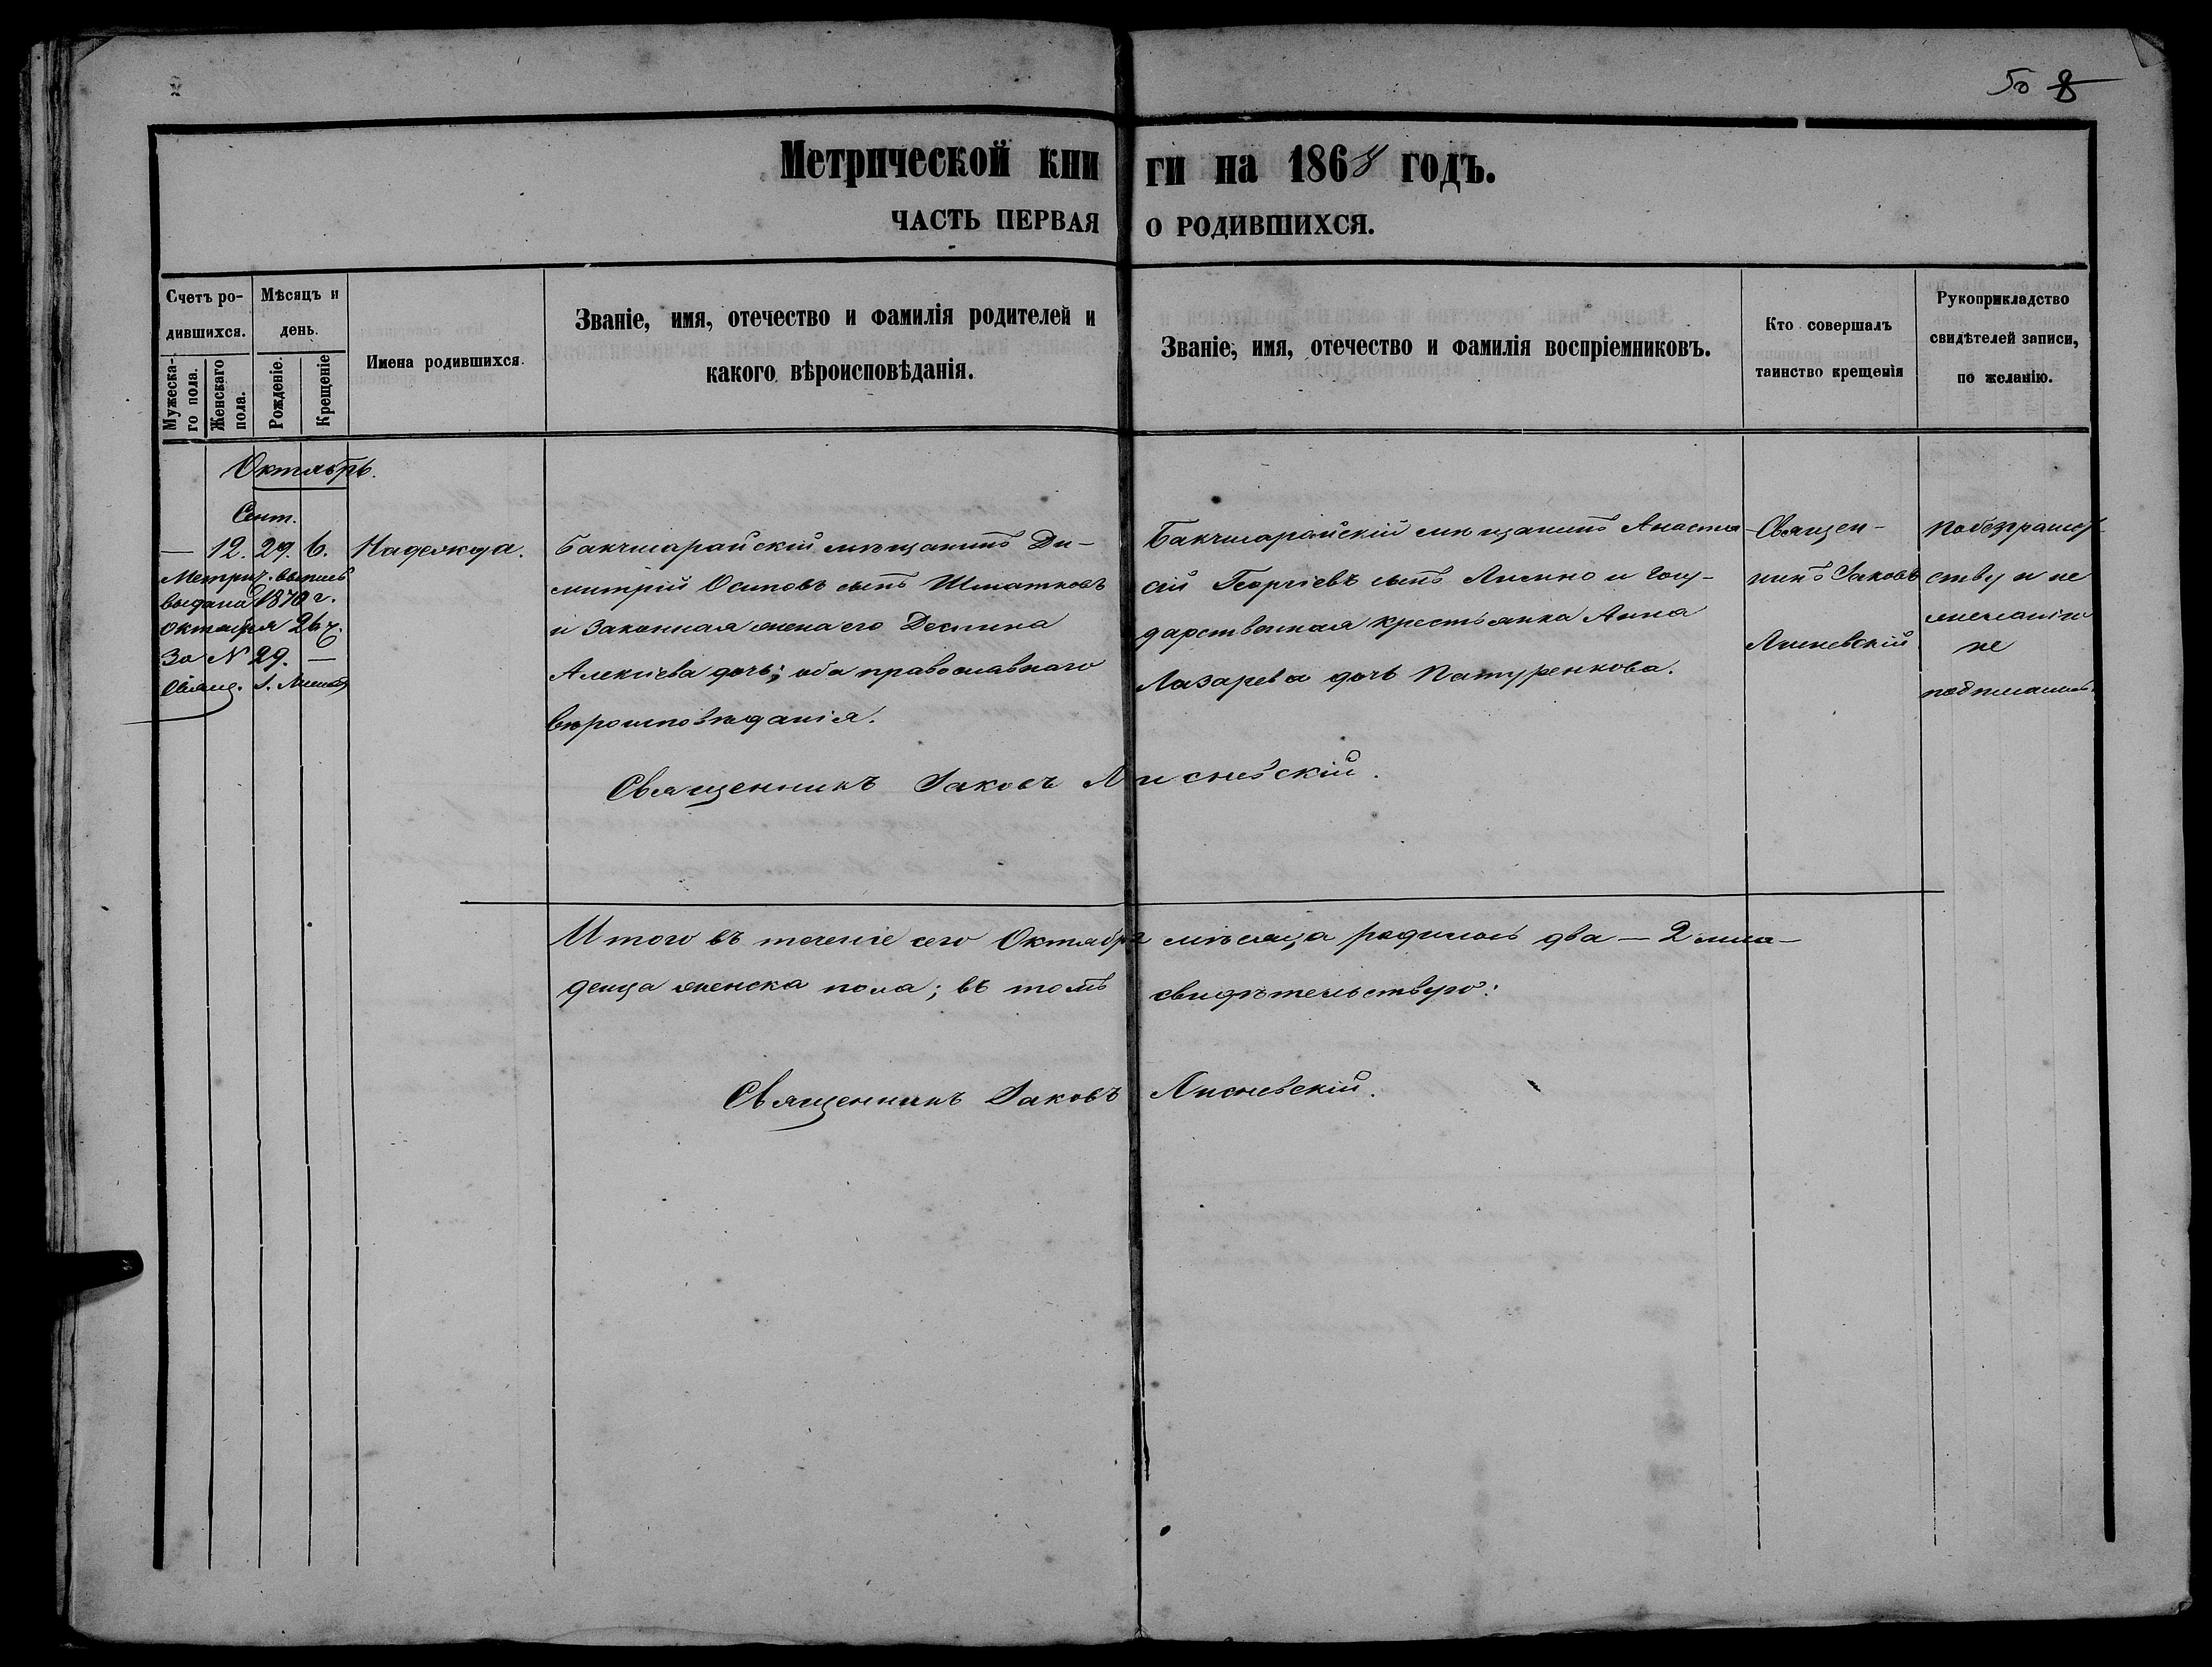 50 8
Метрической книги на 1868 годъ.
ЧАСТЬ ПЕРВАЯ О РОДИВШИХСЯ.
Счетъ родившихся.
Мужескаго пола.
Женскаго пола.
Мѣсяцъ и день.
Рожденіе.
Крещеніе
Имена родившихся.
Званіе, имя, отечество и фамилія родителей и
какого вѣроисповѣданія.
Званіе, имя, отечество и фамилія воспріемниковъ.
Кто совершалъ
таинство крещенія
Рукоприкладство
свидѣтелей записи,
по желанію.
Октябрь.
Сент.
— 12. 29. 6.
Надежда.
Метрич. выпись
выдана 1870 г.
октября 26 д.
За № 29. —
Свящ. І.
Бакчисарайскій мѣщанинъ Ди-
митрій Осиповъ сынъ Шматковъ
и законная жена его Деспина
Алексіева дочь; оба православнаго
вѣроисповѣданія.
Бакчисарайскій мѣщанинъ Анаста-
сій Георгіевъ сынъ и госу-
дарственная крестьянка Анна
Лазарева дочь Патуренкова.
Священ-
никъ Іаковъ
Лисневскій
По безграмот-
ству и не
желанію
не
подписались.
Священникъ Іаковъ Лисневскій.
Итого въ теченіе сего Октября мѣсяца родилось два — 2 мла-
денца женска пола; въ томъ свидѣтельствую:
Священникъ Іаковъ Лисневскій.